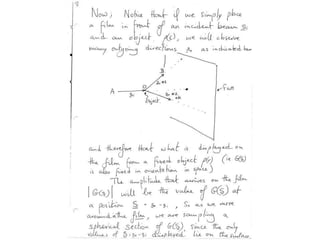 Now; Notice that if we simply place
a film in front of an incident beam S₀
and an object ρ(r), we will observe
many outgoing directions, as indicated here
B
A
S₀
O
Object
Film
and therefore that what is displayed on
the film from a fixed object ρ(r) (ie G(S)
is also fixed in orientation in space)
The amplitude that arrives on the film
|G(S)| will be the value of G(S) at
a position S = S₁ - S₀, So as we move
around the film, we are sampling a
spherical section of G(S), since the only
values of S displayed lie on the surface